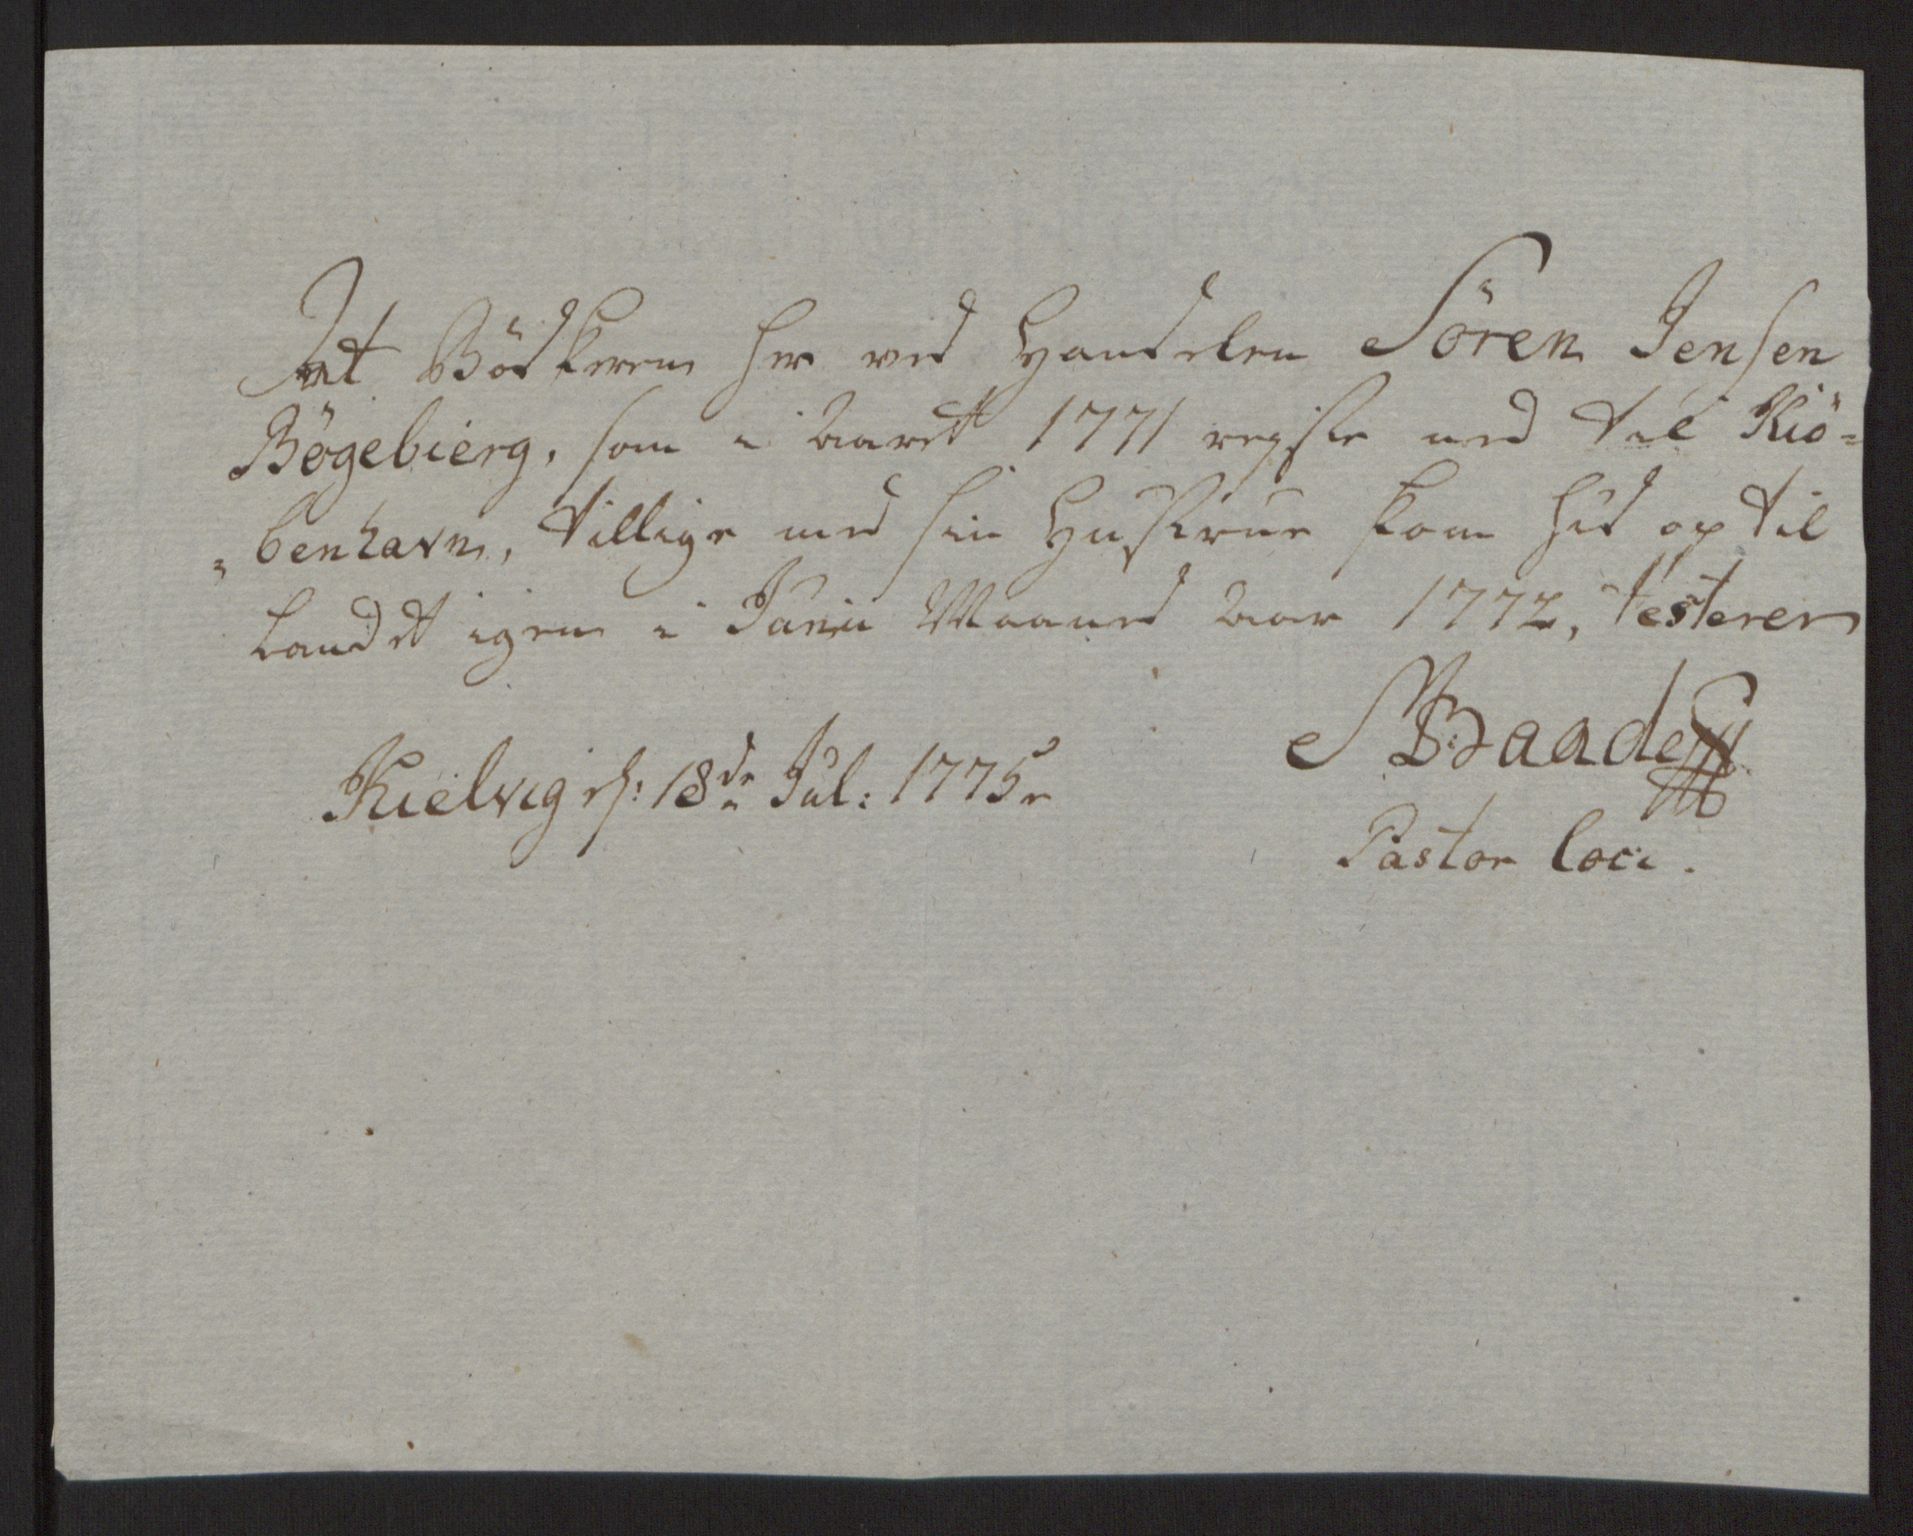 At Bödkeren her ved Handelen Sören Jensen
Bögebierg, som i Aaret 1771 reyste ned til Kiö=
=benhavn, tillige med sin Hustrue kom hid op til
Landet igien i Junii Maaned Aar 1772, testerer
Kielvig d: 18de Jul: 1775
Baade
Pastor Loci.